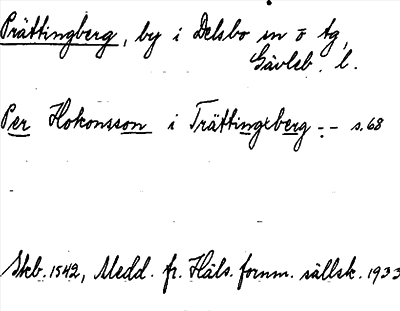 Prättingberg, by i Delsbo sn o tg,
Gävleb. l.
Per Hokonsson i Trättingxberg :- s. 68
Skb. 1542, Medd. fr. Häls. fornm. sällsk. 1933